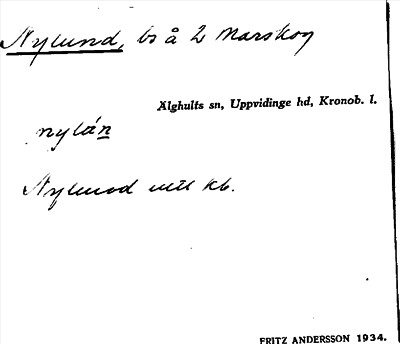 Nylund, bs å 2 Marskog
Älghults sn, Uppvidinge hd, Kronob. l.
nylán
Nylund utt kb.
FRITZ ANDERSSON 1934.